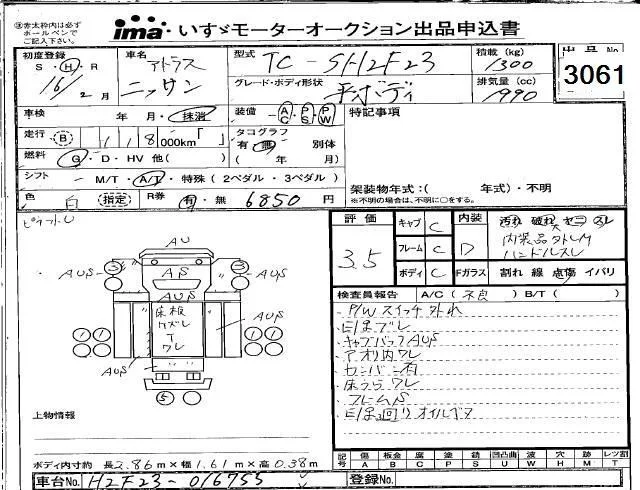 ※赤太枠内は必ず
ボールペンで
ご記入下さい。
ima いすゞモーターオークション出品申込書
初度登録
S・H・R
16/2月
車名
アトラス
ニッサン
型式
TC-SH2F23
積載 (kg)
1300
グレード・ボディ形状
平ボディ
排気量 (cc)
1990
出品No
3061
車検 年 月・抹消
装備 AC・PS・PW
特記事項
走行 B 118,000km「 」
タコグラフ
有・無 別体
( 年 月)
燃料 G・D・HV 他( )
シフト M/T・A/T・特殊 (2ペダル・3ペダル)
架装物年式:( 年式)・不明
※不明の場合は、不明に○をする。
色 白 (指定) R券 有・無 6850円
評価
3.5
キャブ C
フレーム C
ボディ C
内装
D
Fガラス
汚れ 破れ ヤニ スレ
内装品外レM
ハンドルスレ
割れ 線 点傷 イバリ
AU
AUS
AS
3
3
AUS
床板
ケズレ
T
ワレ
AUS
AUS
1 1
1 1
5
上物情報
検査員報告 A/C(不良) B/T( )
P/Wスイッチ外れ
キャブバックAUS
アオリ内ワレ
カンバン有
床うらワレ
フレームS
ボディ内寸約 長2.86m×幅1.61m×高0.38m
記号
傷 A
板金 B
腐 C
塗 P
錆 S
凹凸曲 U
波 W
穴 H
跡 M
レツ割 T
車台No. H2F23-016755
登録No.